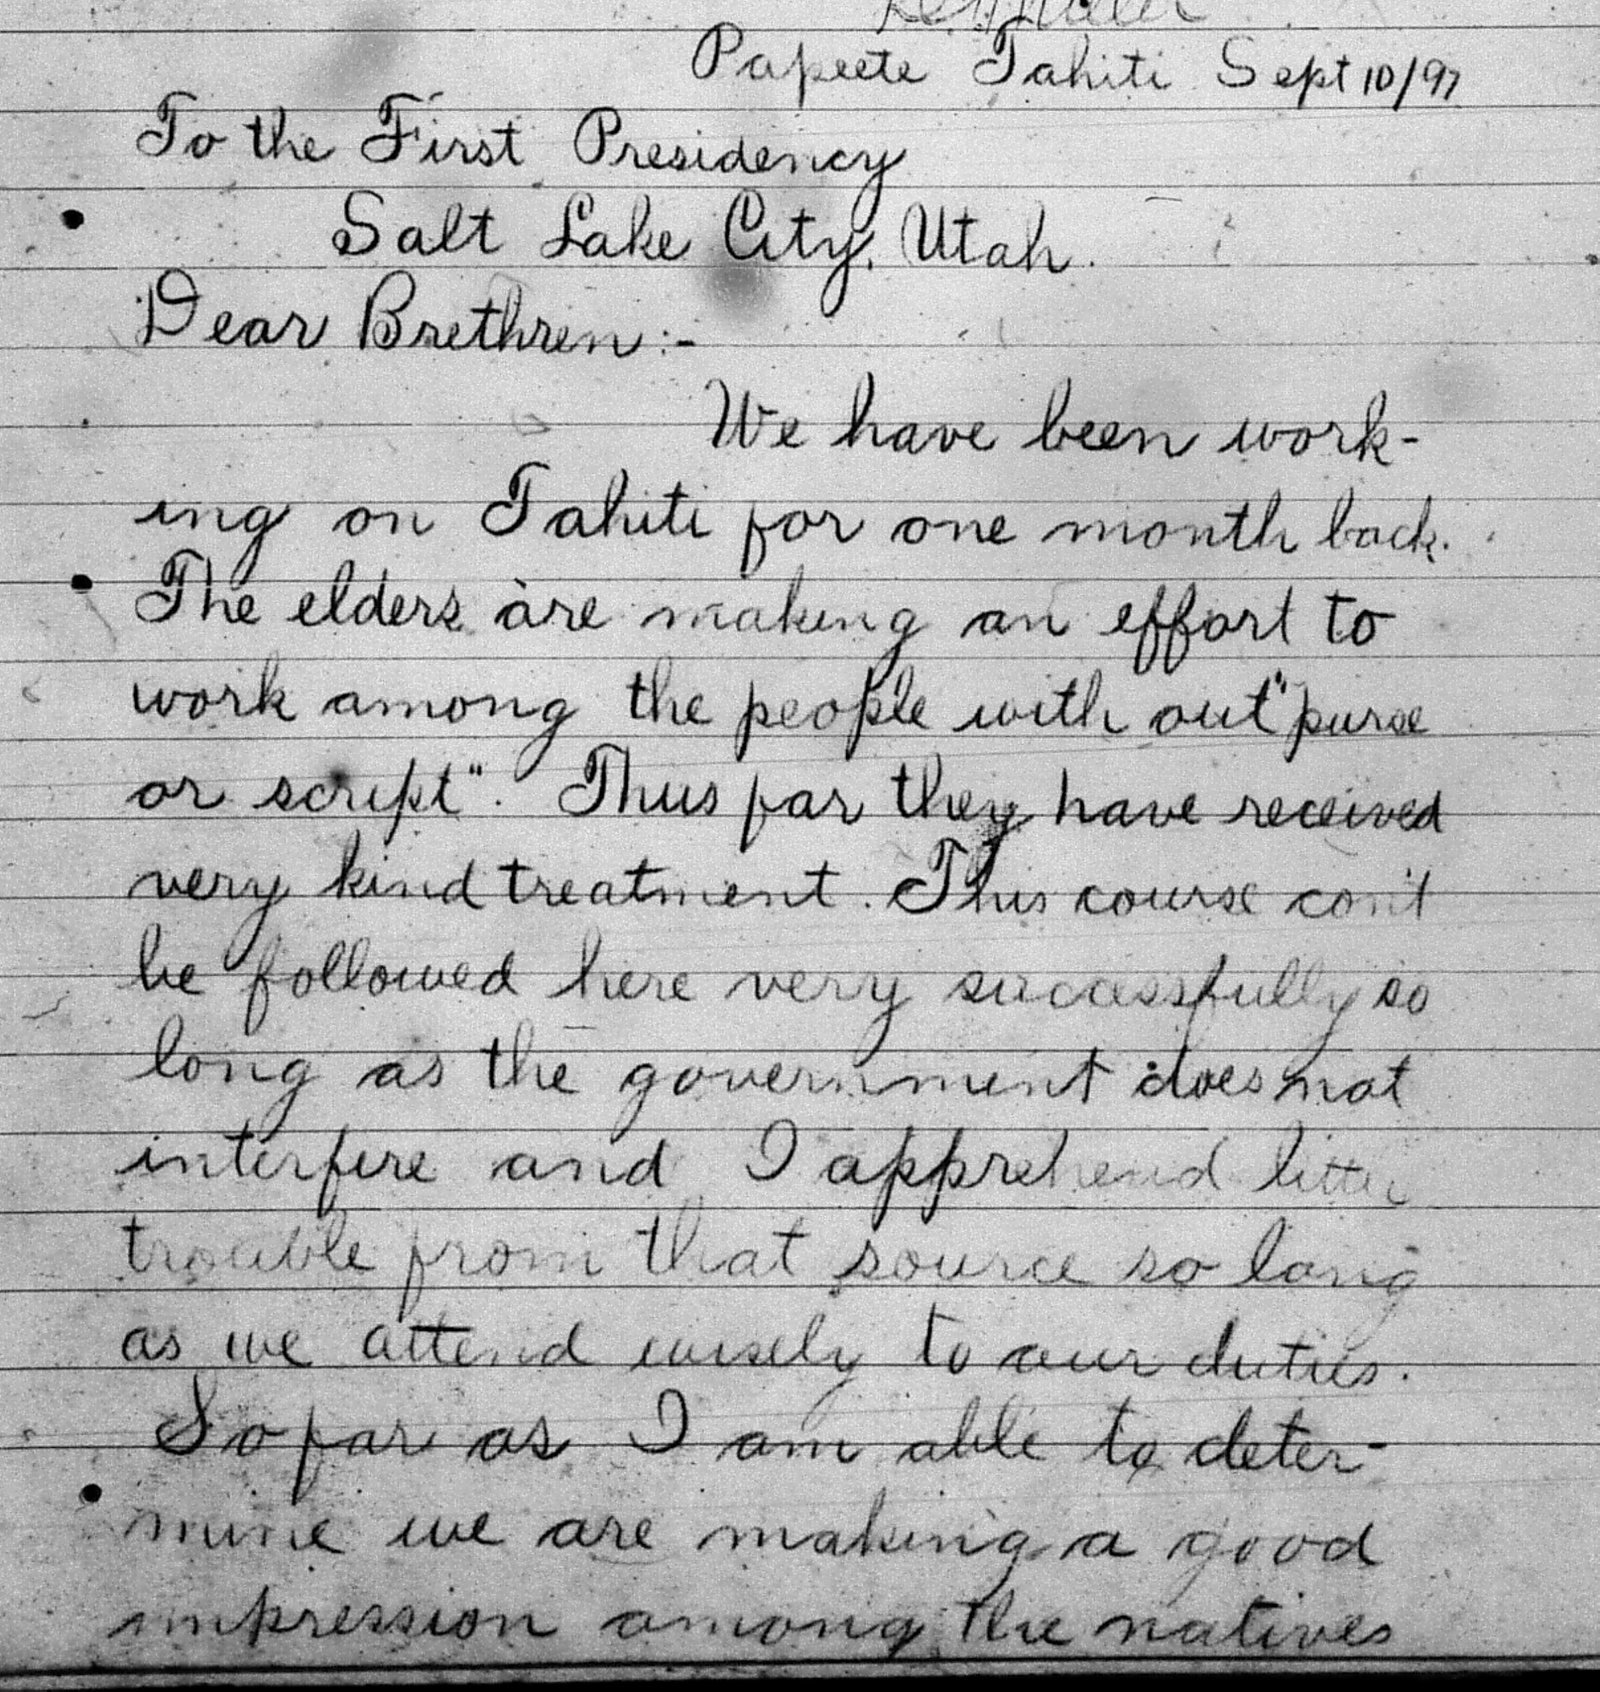 Papeete Tahiti Sept 10/97
To the First Presidency
Salt Lake City, Utah.
Dear Brethren:-
We have been work-
ing on Tahiti for one month back.
The elders are making an effort to
work among the people with out "purse
or script". Thus far they have received
very kind treatment. This course con't
be followed here very successfully so
long as the government does not
interfere and I apprehend little
trouble from that source so long
as we attend wisely to our duties.
So far as I am able to deter-
mine we are making a good
impression among the natives